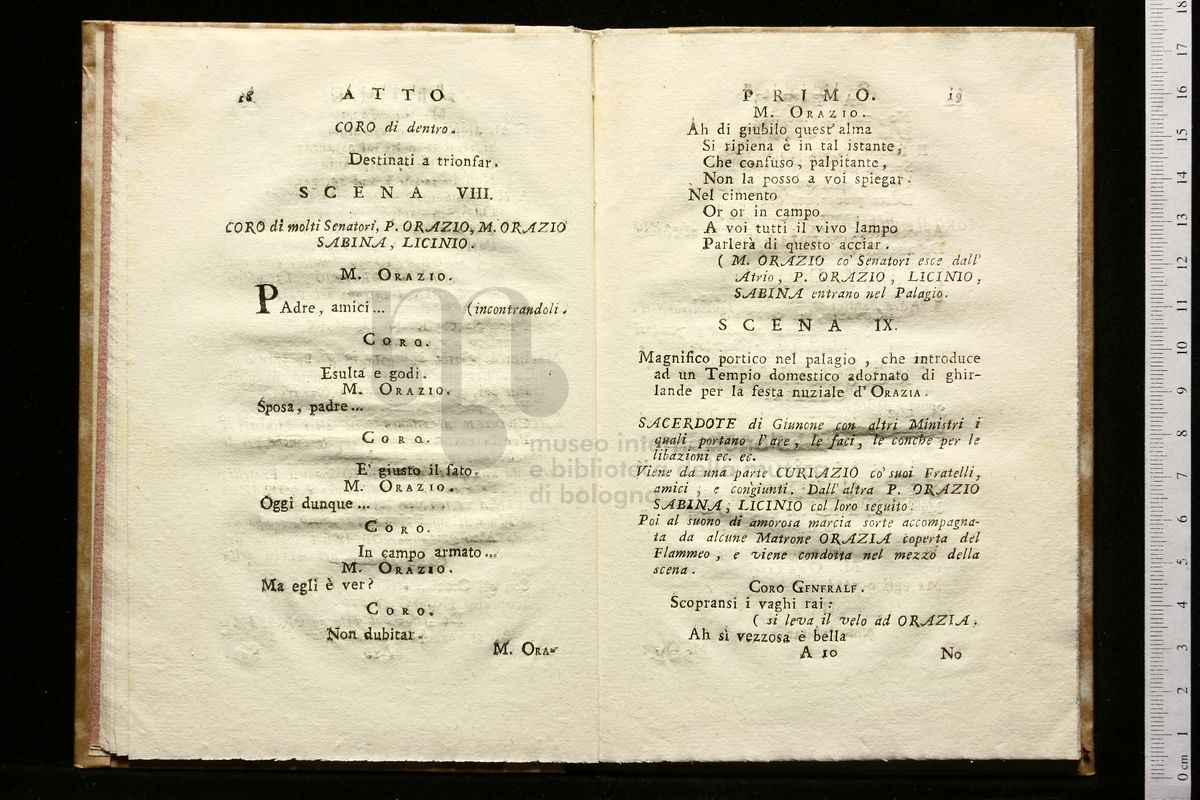 18 ATTO
CORO di dentro.
Destinati a trionfar.
SCENA VIII.
CORO di molti Senatori, P. ORAZIO, M. ORAZIO
SABINA, LICINIO.
M. ORAZIO.
PAdre, amici... (incontrandoli.
CORO.
Esulta e godi.
M. ORAZIO.
Sposa, padre...
CORO.
E' giusto il fato.
M. ORAZIO.
Oggi dunque...
CORO.
In campo armato...
M. ORAZIO.
Ma egli è ver?
CORO.
Non dubitar.
M. ORA-
PRIMO. 19
M. ORAZIO.
Ah di giubilo quest' alma
Si ripiena è in tal istante,
Che confuso, palpitante,
Non la posso a voi spiegar.
Nel cimento
Or or in campo
A voi tutti il vivo lampo
Parlerà di questo acciar.
( M. ORAZIO co' Senatori esce dall'
Atrio, P. ORAZIO, LICINIO,
SABINA entrano nel Palagio.
SCENA IX.
Magnifico portico nel palagio, che introduce
ad un Tempio domestico adornato di ghir-
lande per la festa nuziale d' ORAZIA.
SACERDOTE di Giunone con altri Ministri i
quali portano l'are, le faci, le conche per le
libazioni ec. ec.
Viene da una parte CURIAZIO co' suoi Fratelli,
amici, e congiunti. Dall' altra P. ORAZIO
SABINA, LICINIO col loro seguito.
Poi al suono di amorosa marcia sorte accompagna-
ta da alcune Matrone ORAZIA coperta del
Flammeo, e viene condotta nel mezzo della
scena.
CORO GENFRALF.
Scopransi i vaghi rai:
( si leva il velo ad ORAZIA.
Ah sì vezzosa e bella
A 10 No
museo inte
e bibliote
di bologna
0 cm 1 2 3 4 5 6 7 8 9 10 11 12 13 14 15 16 17 18